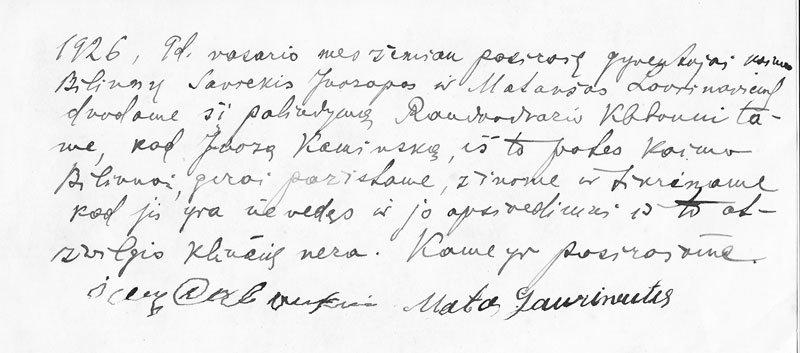 1926, 9d. vasario mes žemiau pasirašę gyventojai kaimo
Biliunų Savrekis Juozapas ir Mataušas
duodame šį paliudymą Raudondvario Klebonui ta-
me, kad Juozą Kaminską, iš to paties kaimo
Biliunai, gerai pazistame, zinome ir tikriname
kad jis yra ne vedęs ir jo apsivedimui iš to at-
zvilgio kliučių nera. Kame ir pasirašome.
Matas Laurinavičius